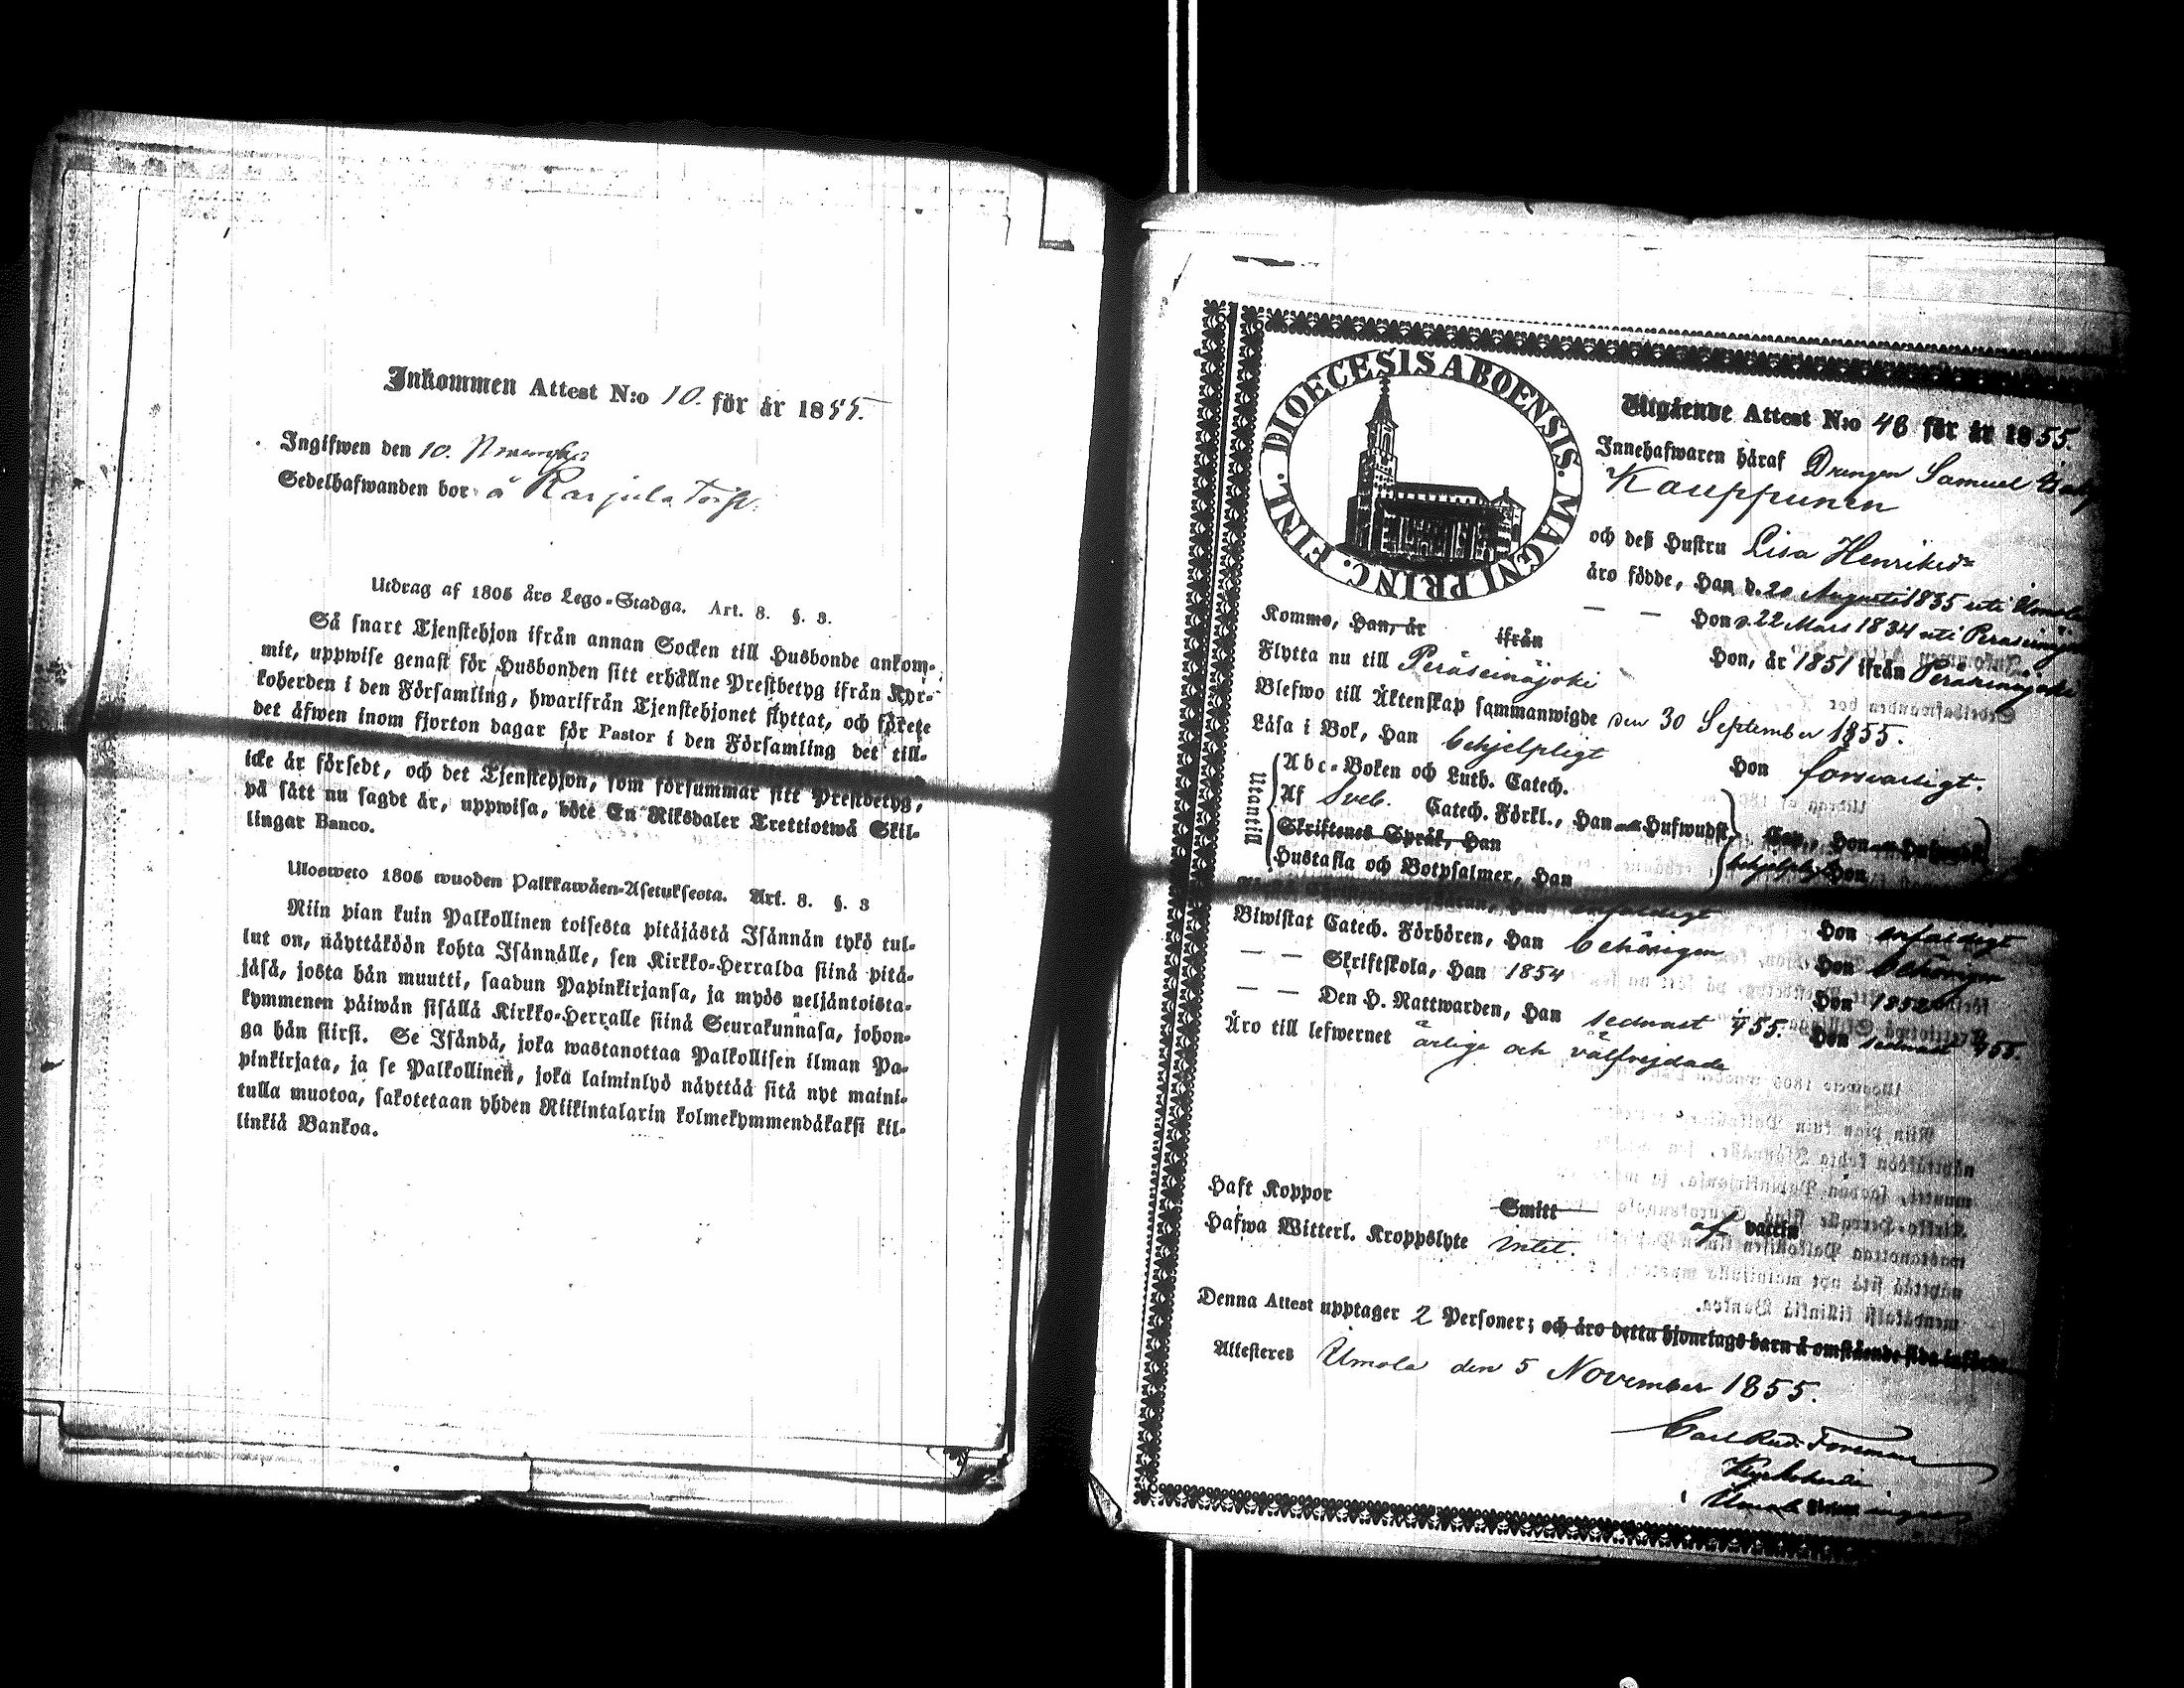 Inkommen Attest N:o 10. för år 1855.
Ingifwen den 10. November
Sedelhafwanden bor å Karjula Torp.
Utdrag af 1805 års Lego-Stadga. Art. 8. §. 3.
Så snart Tjenstehjon ifrån annan Socken till Husbonde ankom-
mit, uppwise genast för Husbonden sitt erhållne Prestbetyg ifrån Kyr-
koherden i den Församling, hwarifrån Tjenstehjonet flyttat, och förete
det äfwen inom fjorton dagar för Pastor i den Församling det till-
icke är försedt, och det Tjenstehjon, som försummar sitt Prestbetyg,
på sätt nu sagdt är, uppwisa, böte En Riksdaler Trettiotwå Skil-
lingar Banco.
Ulosweto 1805 wuoden Palkkawäen-Asetuksesta. Art. 8. §. 3
Niin pian kuin Palkollinen toisesta pitäjästä Isännän tykö tul-
lut on, näyttäköön kohta Isännälle, sen Kirkko-Herralda siinä pitä-
jäsä, josta hän muutti, saadun Papinkirjansa, ja myös neljäntoista-
kymmenen päiwän sisällä Kirkko-Herralle siinä Seurakunnasa, johon-
ga hän siirsi. Se Isändä, joka wastanottaa Palkollisen ilman Pa-
pinkirjata, ja se Palkollinen, joka laiminlyö näyttää sitä nyt maini-
tulla muotoa, sakotetaan yhden Riikintalarin kolmekymmendäkaksi kil-
linkiä Bankoa.
DIOECESIS ABOENSIS. MAGNI PRINC. FINL.
Utgående Attest N:o 46 för år 1855.
Innehafwaren häraf Drengen Samuel
Kauppunen
och deß Hustru Lisa Henriksd:
äro födde, Han d. 20 Augusti 1835 uti Ilmola
— — Hon d. 22 Mars 1834 uti Peräseinäjoki
Kommo, Han, år ifrån Hon, år 1851 ifrån Peräseinäjoki
Flytta nu till Peräseinäjoki
Blefwo till Äktenskap sammanwigde den 30 September 1855.
Läsa i Bok, Han behjelpligt Hon forsvarligt.
Utantill
Abc-Boken och Luth. Catech.
Af Sveb. Catech. Förkl., Han Hufwudst. Cap., Hon Hufwudst
Skriftenes Språk, Han
Hustafla och Botpsalmer, Han behjelpligt Hon
Han enfaldigt Hon enfaldigt
Biwistat Catech. Förhören, Han behörigen Hon behörigen
— — Skriftskola, Han 1854 Hon 1852
— — Den H. Nattwarden, Han sednast 55. Hon sednast 55.
Äro till lefwernet ärlige och välfrejdade
Haft Koppor Smitt af vaccin
Hafwa Witterl. Kroppslyte intet.
Denna Attest upptager 2 Personer; och äro detta hjonelags barn å omstående sida införde
Attesteres Ilmola den 5 November 1855.
Carl Rud: Forsman
Kyrkoherde